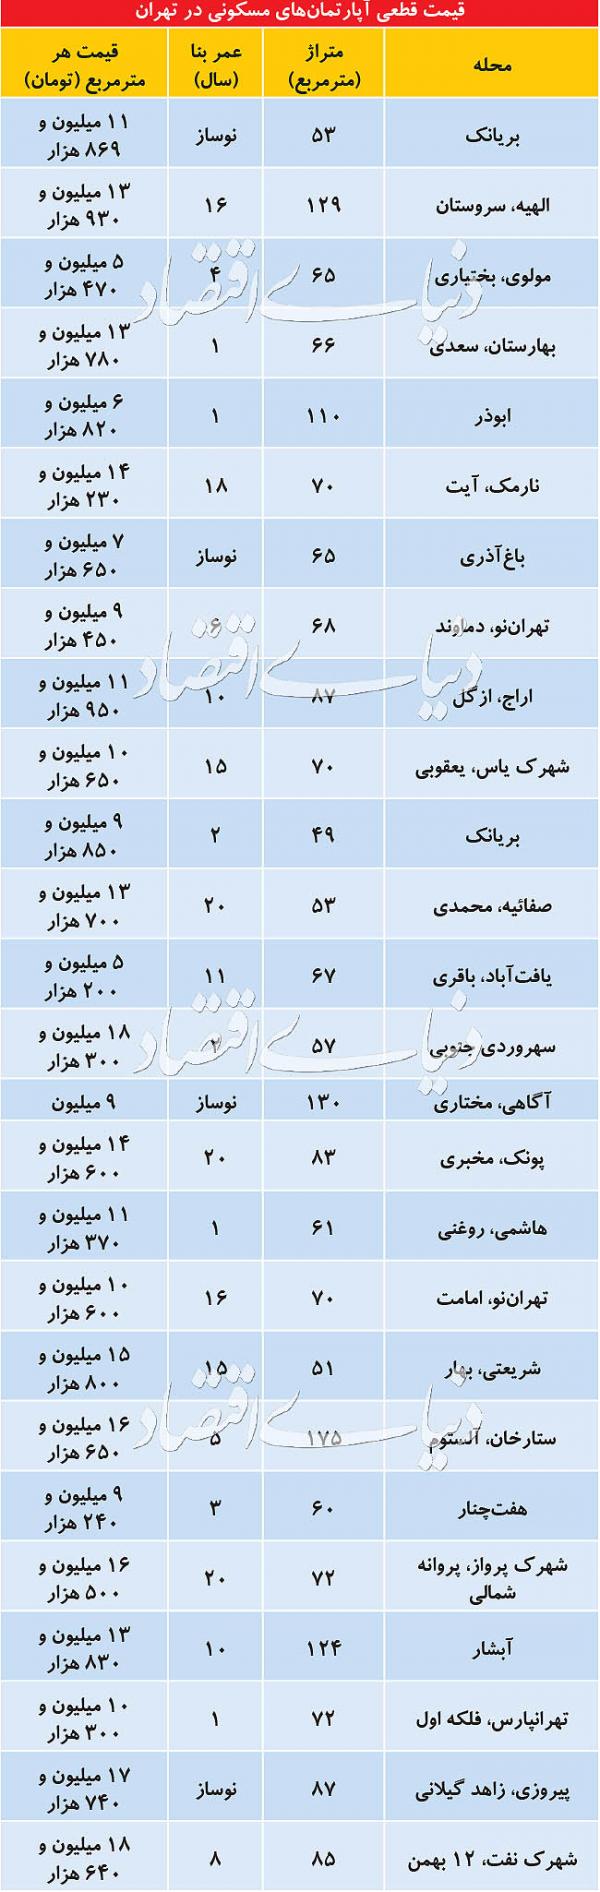 قیمت قطعی آپارتمان‌های مسکونی در تهران
محله متراژ (مترمربع) عمر بنا (سال) قیمت هر مترمربع (تومان)
بریانک ۵۳ نوساز ۱۱ میلیون و ۸۶۹ هزار
الهیه، سروستان ۱۲۹ ۱۶ ۱۳ میلیون و ۹۳۰ هزار
مولوی، بختیاری ۶۵ ۴ ۵ میلیون و ۴۷۰ هزار
بهارستان، سعدی ۶۶ ۱ ۱۳ میلیون و ۷۸۰ هزار
ابوذر ۱۱۰ ۱ ۶ میلیون و ۸۲۰ هزار
نارمک، آیت ۷۰ ۱۸ ۱۴ میلیون و ۲۳۰ هزار
باغ‌آذری ۶۵ نوساز ۷ میلیون و ۶۵۰ هزار
تهران‌نو، دماوند ۶۸ ۶ ۹ میلیون و ۴۵۰ هزار
اراج، ازگل ۸۷ ۱۰ ۱۱ میلیون و ۹۵۰ هزار
شهرک یاس، یعقوبی ۷۰ ۱۵ ۱۰ میلیون و ۶۵۰ هزار
بریانک ۴۹ ۲ ۹ میلیون و ۸۵۰ هزار
صفائیه، محمدی ۵۳ ۲۰ ۱۳ میلیون و ۷۰۰ هزار
یافت‌آباد، باقری ۶۷ ۱۱ ۵ میلیون و ۲۰۰ هزار
سهروردی جنوبی ۵۷ ۲ ۱۸ میلیون و ۳۰۰ هزار
آگاهی، مختاری ۱۳۰ نوساز ۹ میلیون
پونک، مخبری ۸۳ ۲۰ ۱۴ میلیون و ۶۰۰ هزار
هاشمی، روغنی ۶۱ ۱ ۱۱ میلیون و ۳۷۰ هزار
تهران‌نو، امامت ۷۰ ۱۶ ۱۰ میلیون و ۶۰۰ هزار
شریعتی، بهار ۵۱ ۱۵ ۱۵ میلیون و ۸۰۰ هزار
ستارخان، آلستوم ۱۷۵ ۵ ۱۶ میلیون و ۶۵۰ هزار
هفت‌چنار ۶۰ ۳ ۹ میلیون و ۲۴۰ هزار
شهرک پرواز، پروانه شمالی ۷۲ ۲۰ ۱۶ میلیون و ۵۰۰ هزار
آبشار ۱۲۴ ۱۰ ۱۳ میلیون و ۸۳۰ هزار
تهرانپارس، فلکه اول ۷۲ ۱ ۱۰ میلیون و ۳۰۰ هزار
پیروزی، زاهد گیلانی ۸۷ نوساز ۱۷ میلیون و ۷۴۰ هزار
شهرک نفت، ۱۲ بهمن ۸۵ ۸ ۱۸ میلیون و ۶۴۰ هزار
دنیای اقتصاد
دنیای اقتصاد
دنیای اقتصاد
دنیای اقتصاد